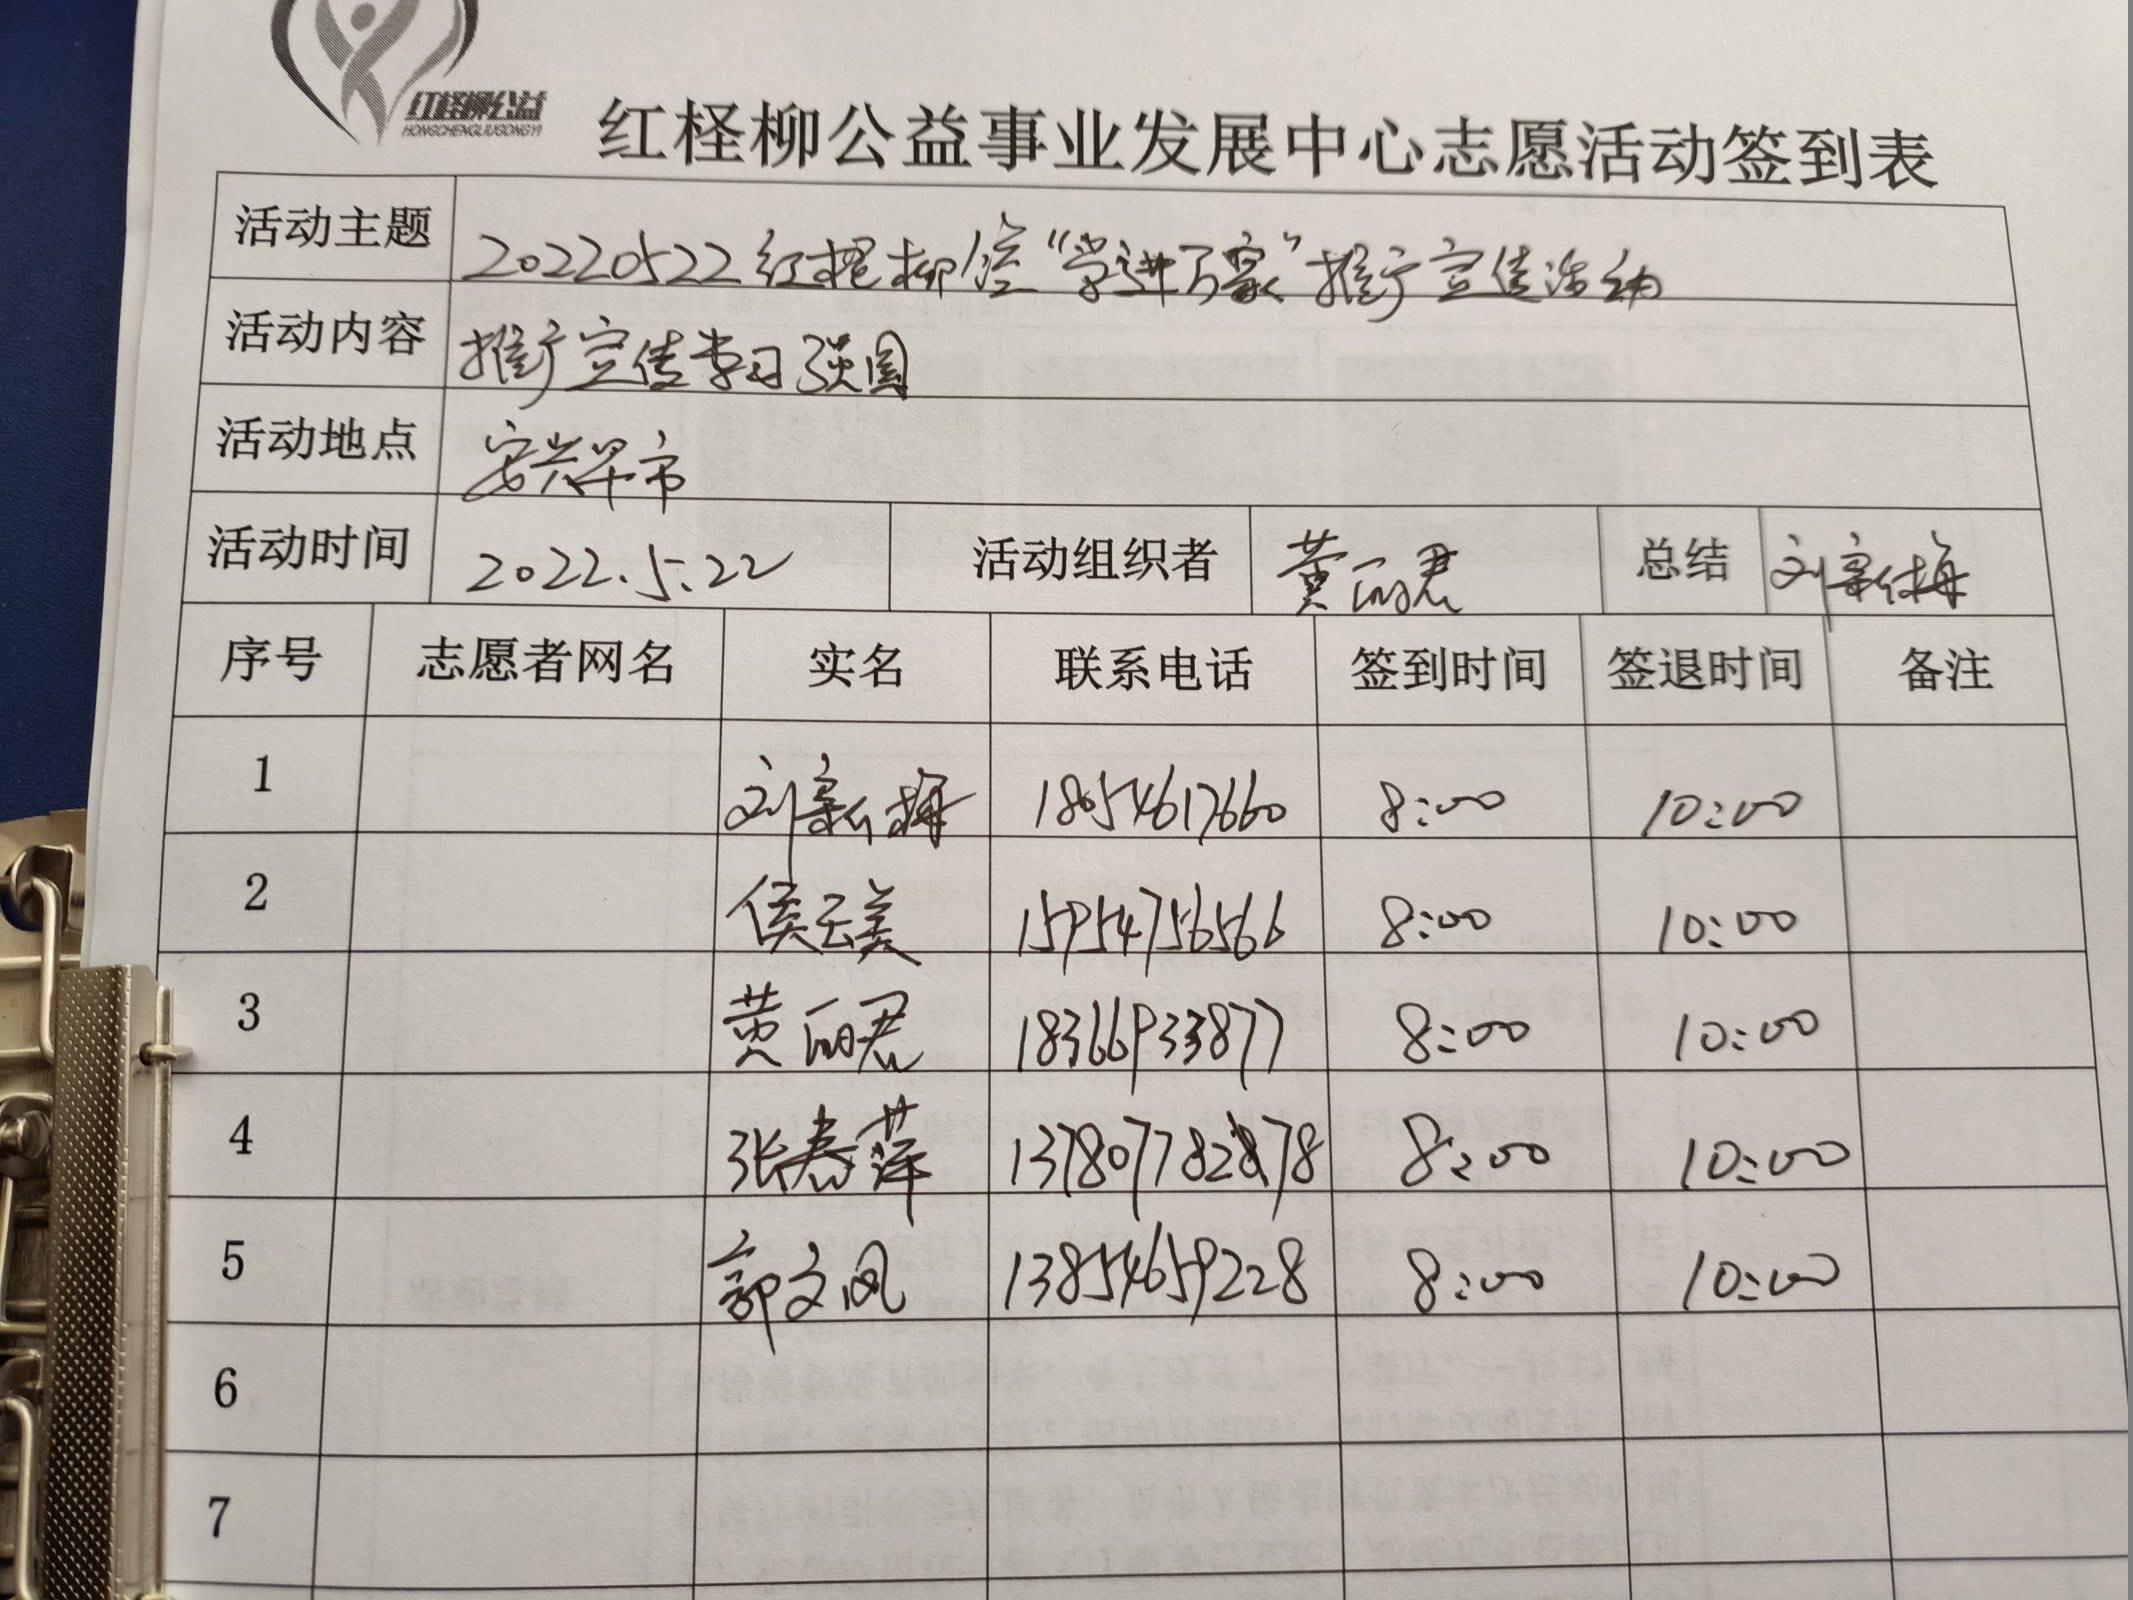 红柽柳公益
HONGCHENGLIUGONGYI
红柽柳公益事业发展中心志愿活动签到表
活动主题 20220522红柽柳 "学进万家"推广宣传活动
活动内容 推广宣传学习强国
活动地点 安兴早市
活动时间 2022.5.22 活动组织者 黄丽君 总结 刘新梅
序号 志愿者网名 实名 联系电话 签到时间 签退时间 备注
1 刘新梅 18054617660 8:00 10:00
2 侯云美 15954756566 8:00 10:00
3 黄丽君 18366933877 8:00 10:00
4 张春萍 8:00 10:00
5 郭文凤 13854659228 8:00 10:00
6
7